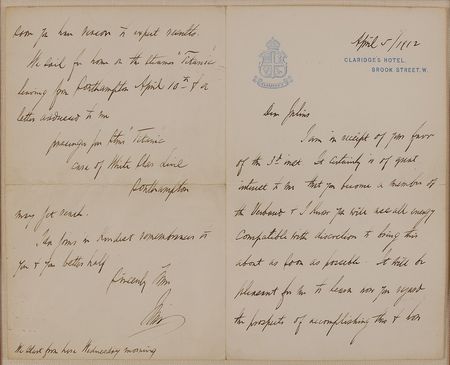 April 5/1912
CLARIDGES HOTEL,
BROOK STREET, W.
Dear Julius
I am in receipt of your favor
of the 3d inst. It certainly is of great
interest to me that you become a member of
the Verband & I know you will use all energy
compatible with discretion to bring this
about as soon as possible. It will be
pleasant for me to learn how you regard
the prospects of accomplishing this & how
soon you have reason to expect results.
We sail for home on the steamer "Titanic"
leaving from Southampton April 10th & a
letter addressed to me
passenger for Stmr Titanic
care of White Star Line
Southampton
may get reach.
Ida joins in kindest remembrances to
you & your better half
Sincerely Yours
We start from here Wednesday morning